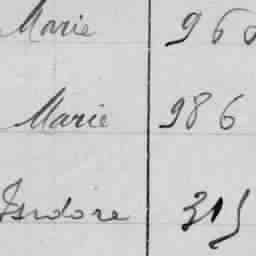 Marie 96
Marie 986
Isidore 315